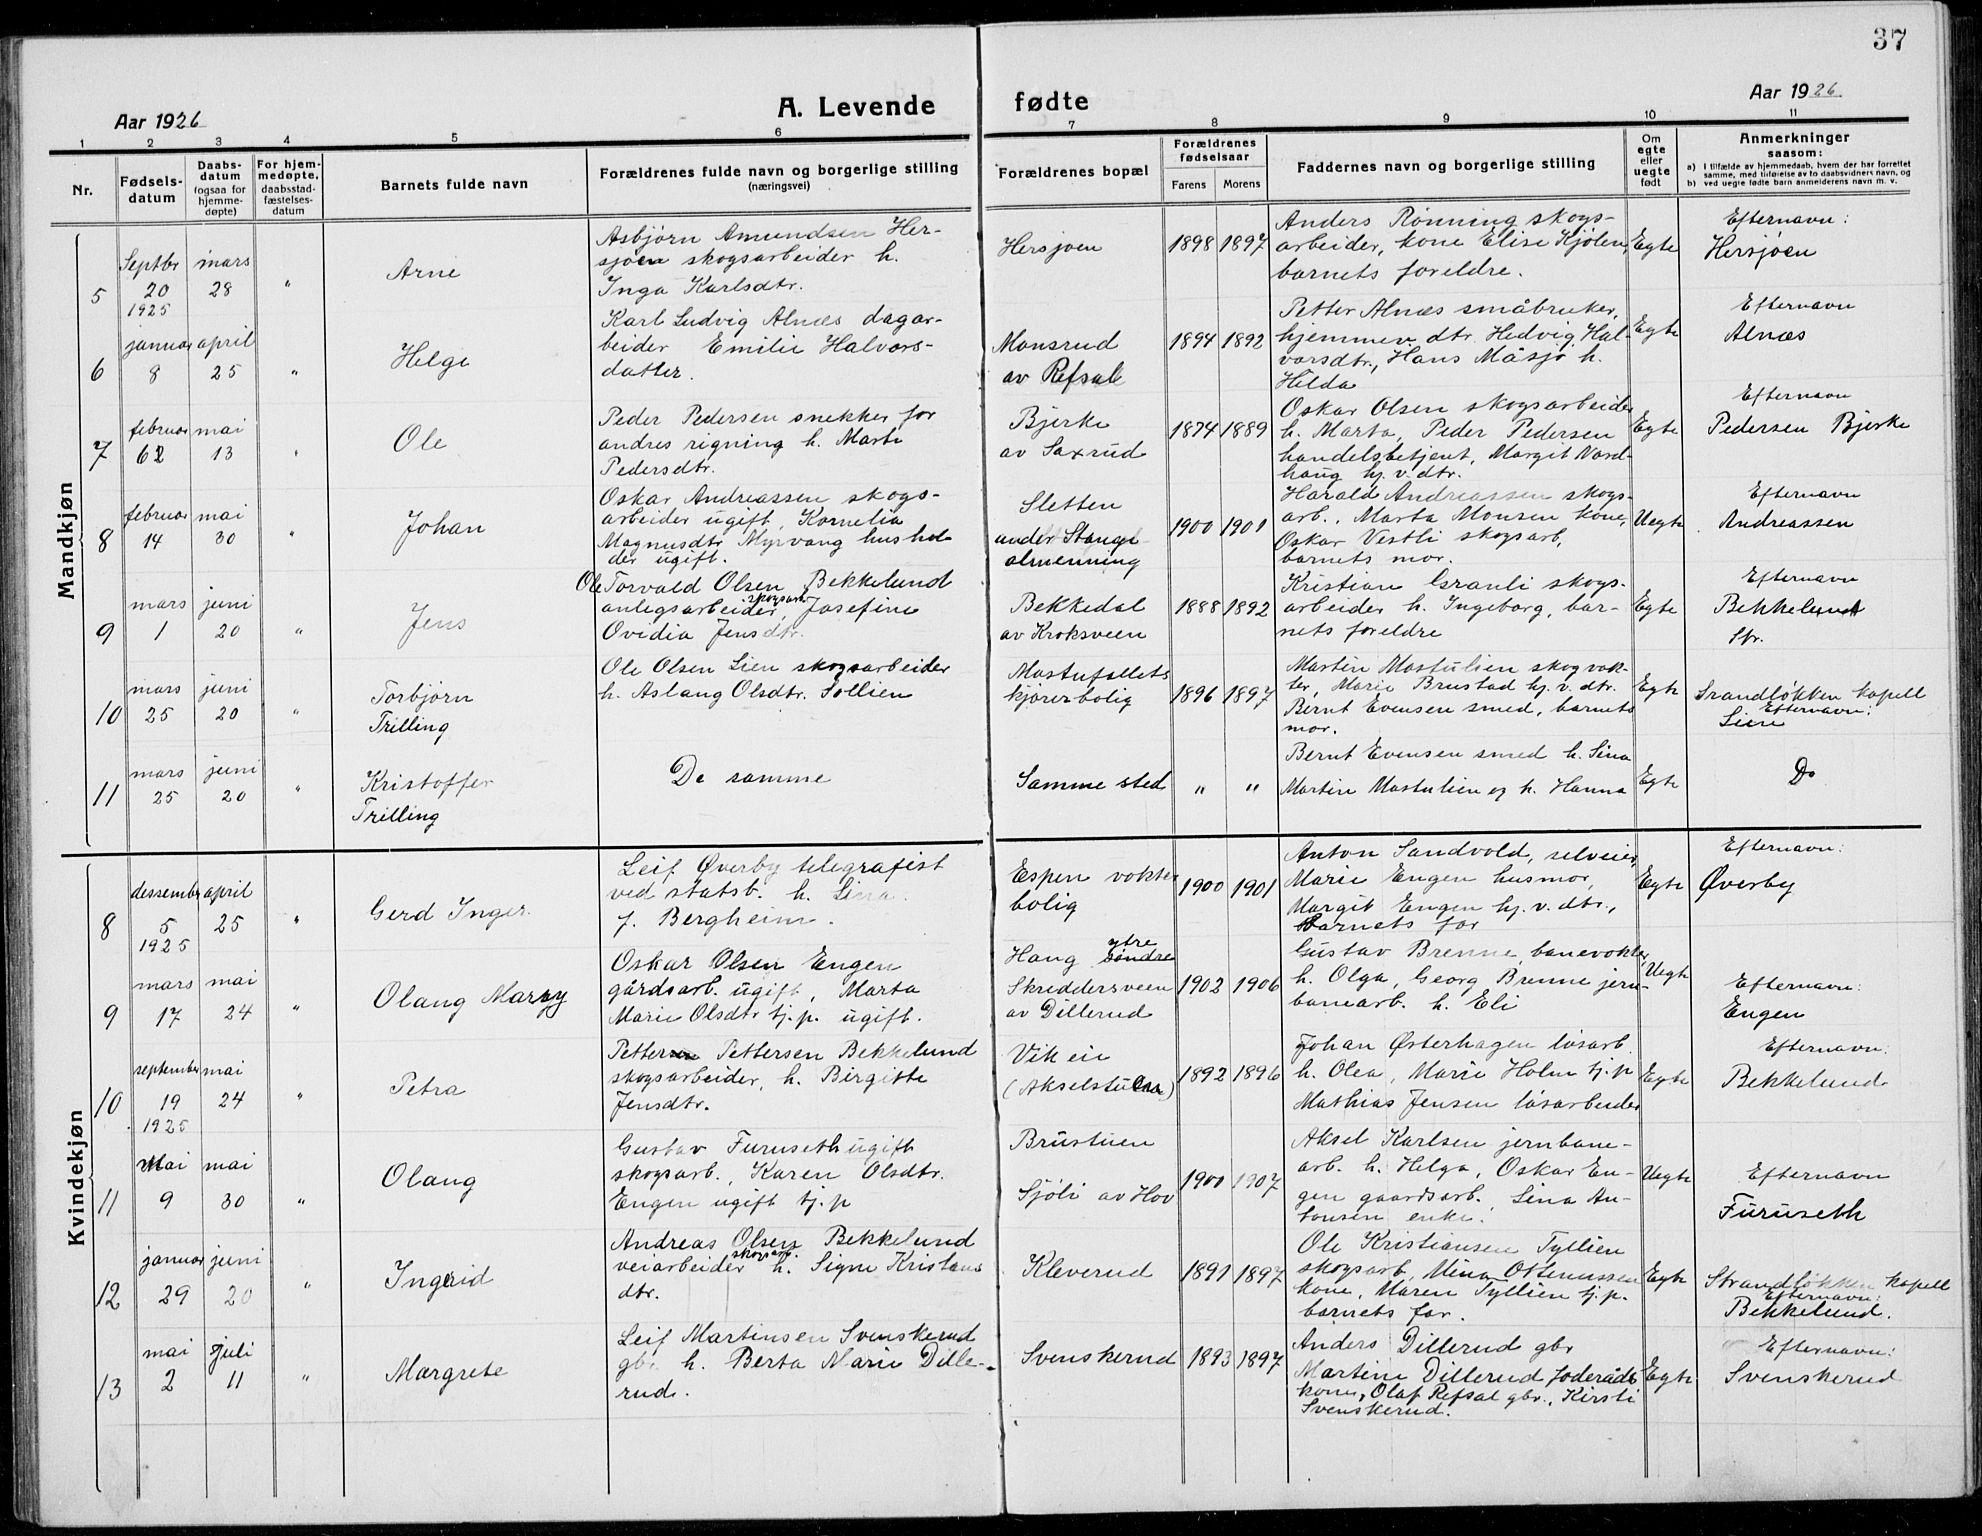 37
Aar 1926
A. Levende fødte
Aar 1926
1 2 3 4 5 6 7 8 9 10 11
Nr.
Fødsels-
datum
Daabs-
datum
(ogsaa for
hjemme-
døpte)
For hjem-
medøpte,
daabsstad-
fæstelses-
datum
Barnets fulde navn
Forældrenes fulde navn og borgerlige stilling
(næringsvei)
Forældrenes bopæl
Forældrenes
fødselsaar
Farens Morens
Faddernes navn og borgerlige stilling
Om
egte
eller
uegte
født
Anmerkninger
saasom:
a) I tilfælde av hjemmedaab, hvem der har forrettet
samme, med tilføielse av to daabsvidners navn, og
b) ved uegte fødte barn anmelderens navn m. v.
Mandkjøn
5
Septbr
20
1925
mars
28
"
Arne
Asbjørn Amundsen Her-
sjøen skogsarbeider h.
Inga Karlsdtr.
Hersjøen
1898 1897
Anders Rønning skogs-
arbeider, kone Elise Kjølen,
barnets foreldre.
Egte
Efternavn:
Hersjøen
6
januar
8
april
25
"
Helge
Karl Ludvig Alnæs dagar-
beider Emilie Halvors-
datter.
Monsrud
av Refsal
1894 1892
Petter Alnæs småbruker,
hjemmev. dtr. Hedvig Hal-
vorsdtr., Hans Måsjø h.
Hilda
Egte
Efternavn
Alnæs
7
februar
62
mai
13
"
Ole
Peder Pedersen snekker for
andres rigning h. Marte
Pedersdtr.
Bjerke
av Saxrud
1874 1889
Oskar Olsen skogsarbeider
h. Marta, Peder Pedersen
handelsbetjent, Margit Nord-
haug hj. v. dtr.
Egte
Efternavn
Pedersen Bjerke
8
februar
14
mai
30
"
Johan
Oskar Andreassen skogs-
arbeider ugift, Kornelia
Magnusdtr Myrvang hushol-
der ugift.
Sletten
under Stange
almenning
1900 1901
Harald Andreassen skogs-
arb., Marta Monsen kone,
Oskar Vestli skogsarb,
barnets mor.
Uegte
Efternavn
Andreassen
9
mars
1
juni
20
"
Jens
Ole Torvald Olsen Bekkelund
anlegsarbeider, skogsarb. Josefine
Ovidia Jensdtr.
Bekkedal
av Kroksveen
1888 1892
Kristian Granli skogs-
arbeider h. Ingeborg, bar-
nets foreldre
Egte
Efternavn
Bekkelund
Str.
10
mars
25
juni
20
"
Torbjørn
Trilling
Ole Olsen Lien skogsarbeider
h. Aslaug Olsdtr. Sollien
Mastufallets
kjørerbolig
1896 1897
Martin Mastulien skogvok-
ter, Marie Brustad hj. v. dtr.
Bernt Evensen smed, barnets
mor.
Egte
Strandløkken kapell
Efternavn:
Lien
11
mars
25
juni
20
"
Kristoffer
Trilling
De samme
Samme sted
" "
Bernt Evensen smed h. Lina
Martin Mastulien og h. Hanna
Egte
Do
Kvindekjøn
8
dessember
5
1925
april
25
"
Gerd Inger
Leif Øverby telegrafist
ved statsb. h. Lina
f. Bergheim.
Espen vokter
bolig
1900 1901
Anton Sandvold, selveier,
Marie Engen husmor,
Margit Engen hj. v. dtr.,
barnets far
Egte
Efternavn:
Øverby
9
mars
17
mai
24
"
Olaug Margy
Oskar Olsen Engen
gårdsarb. ugift, Marta
Marie Olsdtr tj. p. ugift.
Haug ytre søndre
Skriddersveen
av Dillerud
1902 1906
Gustav Brenne, banevokter,
h. Olga, Georg Brenne jern-
banearb. h. Eli
Uegte
Efternavn:
Engen
10
september
19
1925
mai
24
"
Petra
Petter Pettersen Bekkelund
skogsarbeider, h. Birgitte
Jensdtr.
Vik eie
(Akselstuen)
1892 1896
Johan Østerhagen løsarb.
h. Olea, Marie Holm tj. p
Mathias Jensen løsarbeider
Egte
Efternavn:
Bekkelund
11
Mai
9
mai
30
"
Olaug
Gustav Furuseth ugift
skogsarb., Karen Olsdtr.
Engen ugift tj. p
Brustuen
Sjøli av Hov
1900 1907
Aksel Karlsen jernbane-
arb. h. Helga, Oskar En-
gen gaardsarb. Lina An-
tonsen enke.
Uegte
Efternavn
Furuseth
12
januar
29
juni
20
"
Ingrid
Andreas Olsen Bekkelund
veiarbeider skogsarb. h. Signe Kristians
dtr.
Kleverud
1891 1897
Ole Kristiansen Tyllien
skogsarb, Mina Ottenussen
kone, Maren Tyllien tj. p.
barnets far.
Egte
Strandløkken kapell
Efternavn:
Bekkelund.
13
mai
2
Juli
11
"
Margrete
Leif Martinsen Svenskerud
gbr. h. Berta Marie Dille-
rud.
Svenskerud
1893 1897
Anders Dillerud gbr
Martine Dillerud foderåds
kone, Olaf Refsal gbr., Kirsti
Svenskerud.
Egte
Efternavn:
Svenskerud